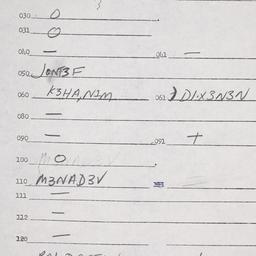 030 O
031 O
040 — 041 —
050 JONT3F
060 K3HA,N1M 061 DI.X3N3N
080 —
090 — 091 +
100 O
110 M3NAD3V
111 —
112 —
120 —